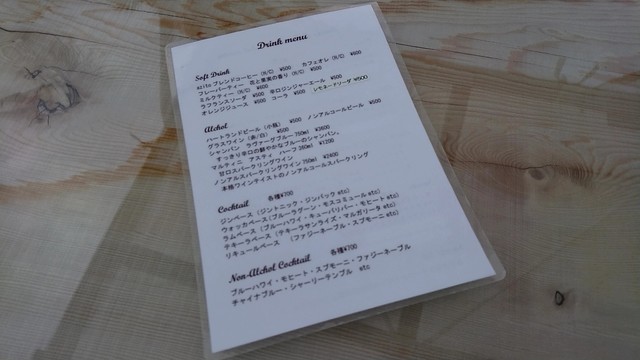 Drink menu
Soft Drink
ブレンドコーヒー (H/C) ¥500 カフェオレ (H/C) ¥600
フレーバーティー 花と果実の香り (H/C) ¥500
ミルクティー (H/C) ¥600
ラフランスソーダ ¥500 辛口ジンジャーエール ¥500
オレンジジュース ¥500 コーラ ¥500 レモネードソーダ ¥500
Alchol
ハートランドビール (小瓶) ¥500 ノンアルコールビール ¥500
グラスワイン (赤/白) ¥500
シャンパン ラヴァーグブルー 750ml ¥3600
すっきり辛口の鮮やかなブルーのシャンパン。
マルティニ アスティ ハーフ 360ml ¥1200
甘口スパークリングワイン
ノンアルスパークリングワイン 750ml ¥2400
本格ワインテイストのノンアルコールスパークリング
Cocktail 各種¥700
ジンベース (ジントニック・ジンバック etc)
ウォッカベース (ブルーラグーン・モスコミュール etc)
ラムベース (ブルーハワイ・キューバリバー・モヒート etc)
テキーラベース (テキーラサンライズ・マルガリータ etc)
リキュールベース (ファジーネーブル・スプモーニ etc)
Non-Alchol Cocktail 各種¥700
ブルーハワイ・モヒート・スプモーニ・ファジーネーブル
チャイナブルー・シャーリーテンプル etc